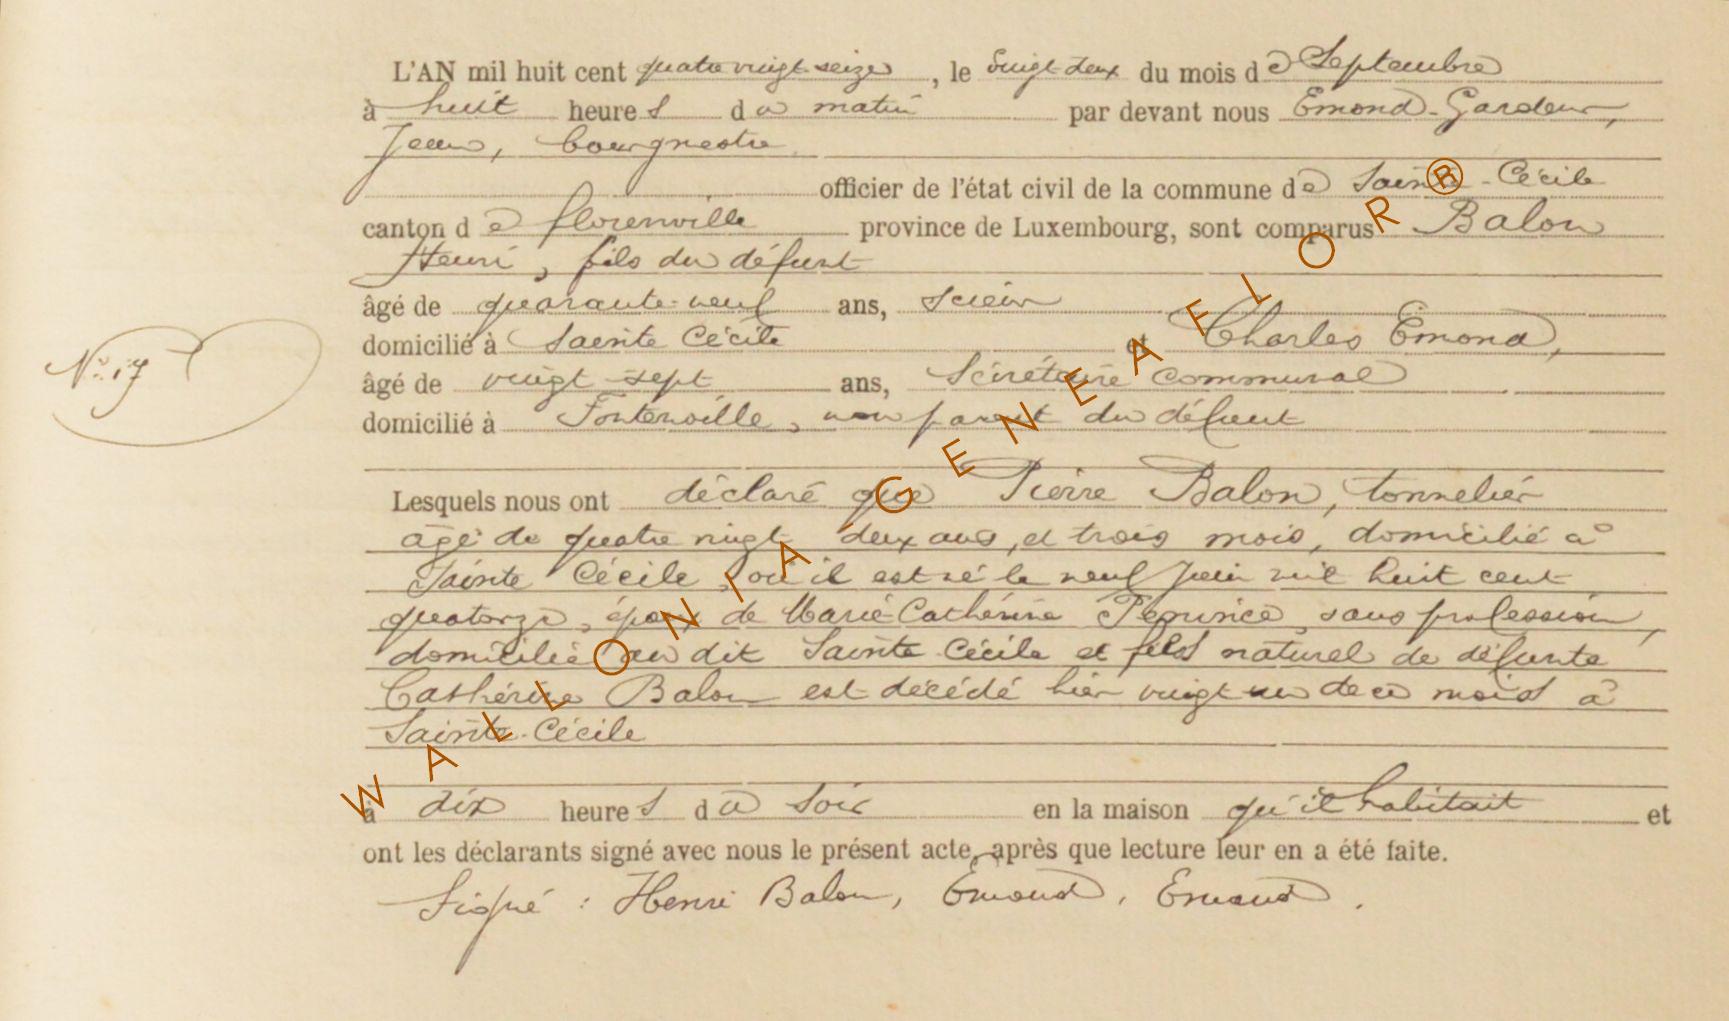 L'AN mil huit cent quatre vingt seize, le vingt-deux du mois de Septembre
à huit heures du matin par devant nous Emond-Gardeur,
Jean, bourgmestre
officier de l'état civil de la commune de Sainte-Cécile
canton de florenville province de Luxembourg, sont comparus Balon
Henri, fils du défunt
âgé de quarante-neuf ans, scieur
domicilié à Sainte Cécile et Charles Emond,
N° 17
âgé de vingt-sept ans, Sécrétaire communal
domicilié à Fontenoille, non parent du défunt
Lesquels nous ont déclaré que Pierre Balon, tonnelier
âgé de quatre vingt deux ans, et trois mois, domicilié à
Sainte Cécile, où il est né le neuf juin mil huit cent
quatorze, époux de Marie Cathérine sans profession,
domiciliée au dit Sainte Cécile et fils naturel de défunte
Cathérine Balon est décédé hier vingt-un de ce mois à
Sainte-Cécile
à dix heures du soir en la maison qu'il habitait et
ont les déclarants signé avec nous le présent acte, après que lecture leur en a été faite.
Signé : Henri Balon, Emond, Emond.
WALLONIA GENEAFLOR®